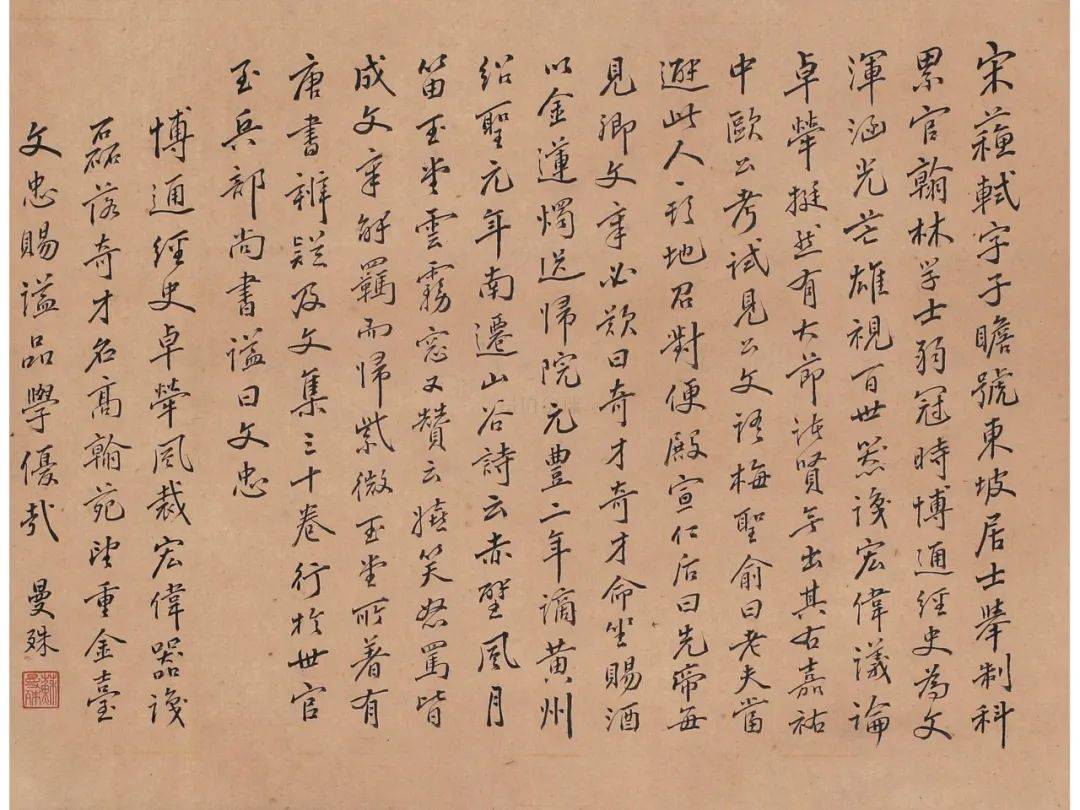 宋蘓軾字子瞻號東坡居士舉制科
累官翰林学士弱冠時博通經史為文
渾涵光芒雄視百世器識宏偉議論
卓犖挺然有大節諸賢無出其右嘉祐
中歐公考試見公文語梅聖俞曰老夫當
避此人一頭地召對便殿宣仁后曰先帝每
見卿文章必歎曰奇才奇才命坐賜酒
以金蓮燭送歸院元豊二年謫黄州
紹聖元年南遷山谷詩云赤壁風月
笛玉堂雲霧窓又贊云嬉笑怒罵皆
成文章解羈而歸紫微玉堂所著有
唐書辨疑及文集三十卷行於世官
至兵部尚書謚曰文忠
博通經史卓犖風裁宏偉器識
磊落奇才名高翰苑望重金臺
文忠賜謚品學優哉
曼殊